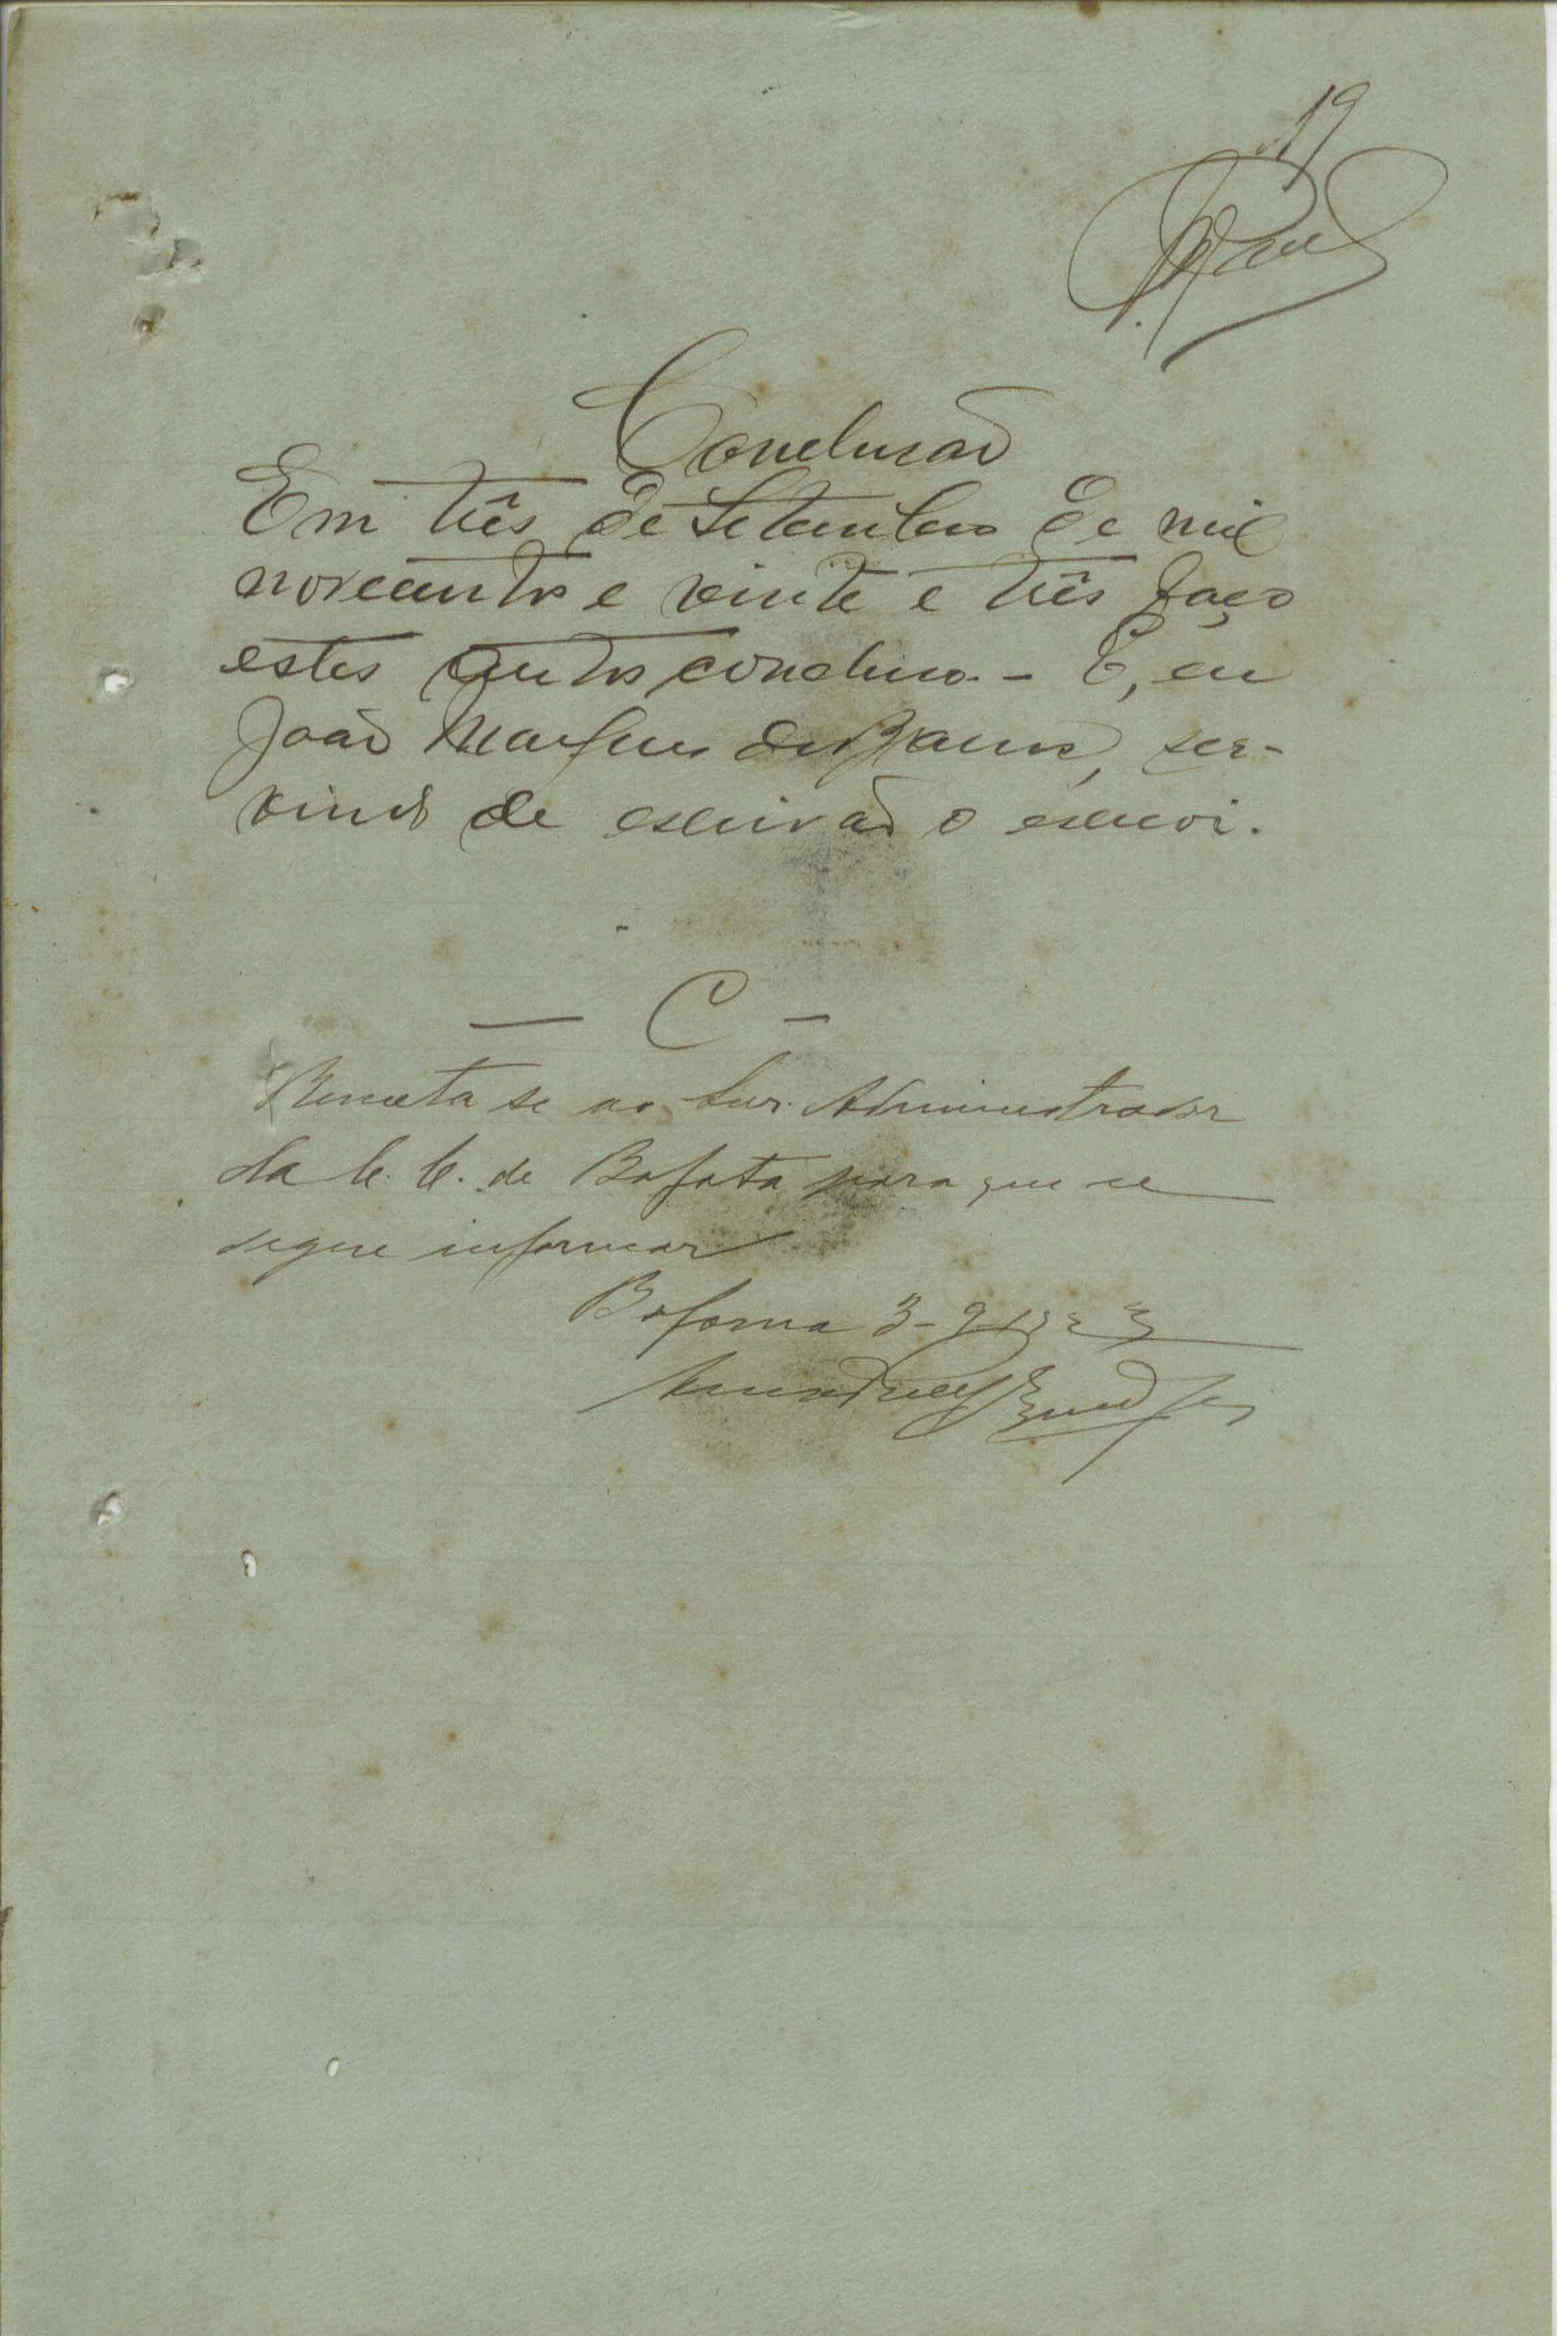 19
Conclusão
Em três de Setembro de mil
novecentos e vinte e três faço
estes autos concluso. - E, eu
João Marques de Barros, ser-
vindo de escrivão o escrevi.
- C -
Remeta se ao Snr. Administrador
da C. C. de Bafatá para que se
digne informar
Bolama 3-9-1923